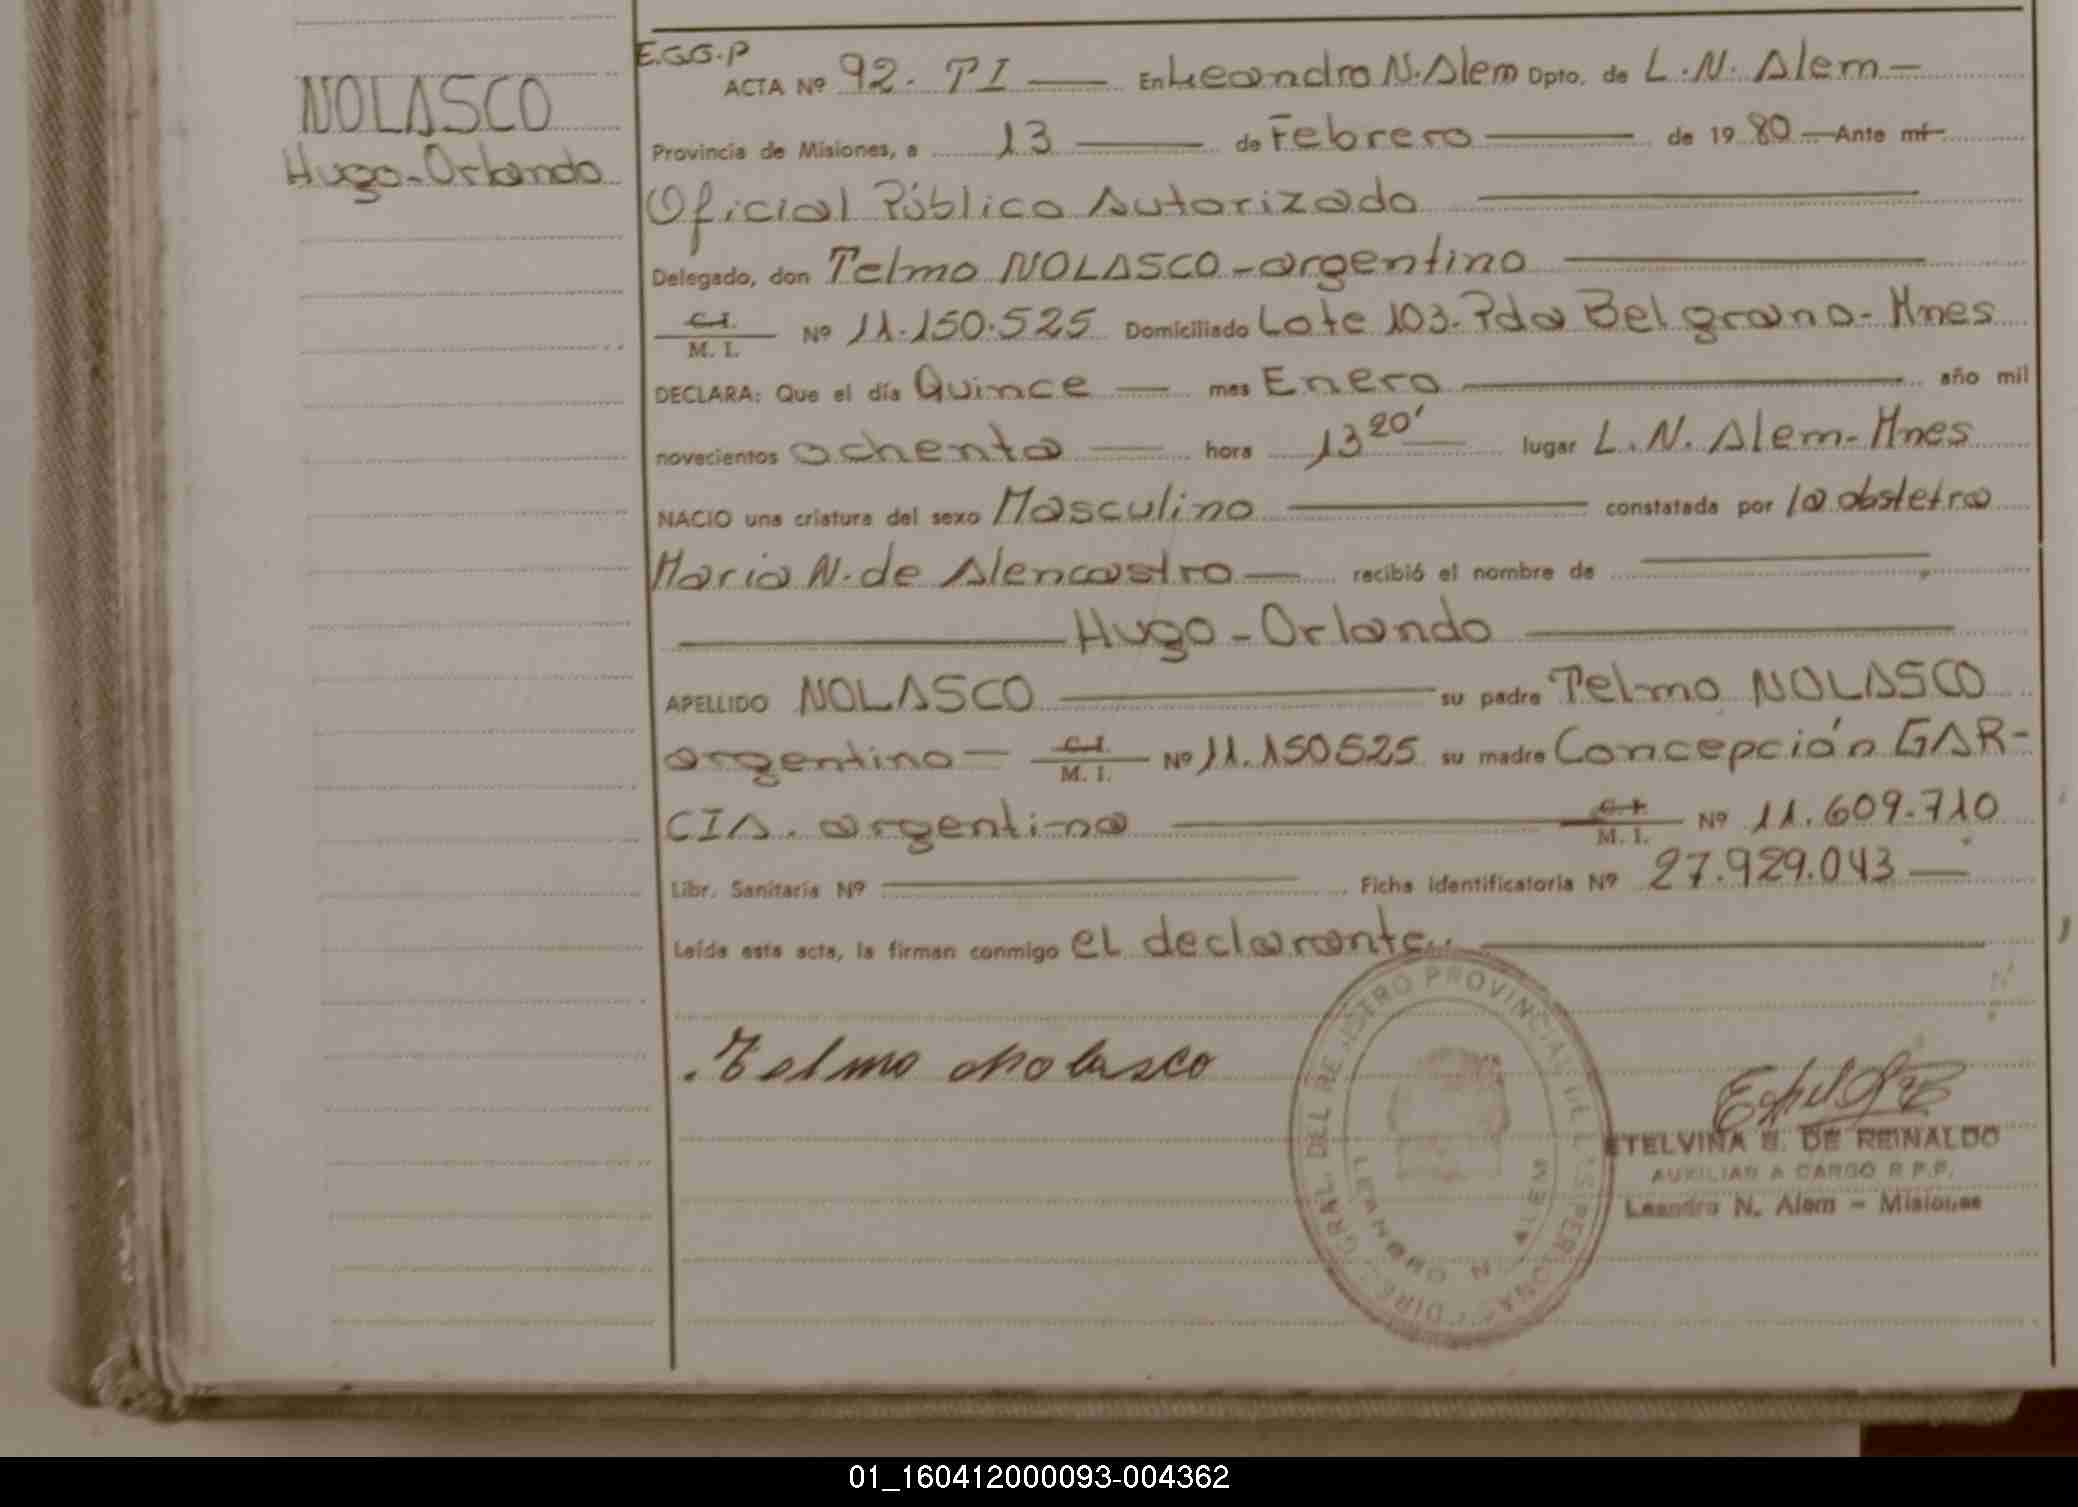 NOLASCO
Hugo-Orlando
E.GG.P
ACTA Nº 92. TI — En Leandro N. Alem Dpto. de L.N. Alem —
Provincia de Misiones, a 13 — de Febrero — de 19 80 — Ante mí
Oficial Público Autorizado
Delegado, don Telmo NOLASCO - argentino
C.I.
M. I. Nº 11.150.525 Domiciliado Lote 103. Pda Belgrano - Mnes
DECLARA: Que el día Quince — mes Enero — año mil
novecientos ochenta — hora 13 20' — lugar L.N. Alem - Mnes
NACIO una criatura del sexo Masculino — constatada por la obstetra
Maria N. de Alencastro — recibió el nombre de
Hugo - Orlando
APELLIDO NOLASCO — su padre Telmo NOLASCO
argentino — C.I.
M. I. Nº 11.150525 su madre Concepción GAR-
CIA. argentina — C.I.
M. I. Nº 11.609.710
Libr. Sanitaria Nº — Ficha identificatoria Nº 27.929.043 —
Leída esta acta, la firman conmigo el declarante.
Telmo Nolasco
DIREC. GRAL. DEL REGISTRO PROVINCIAL DE LAS PERSONAS
LEANDRO N. ALEM
ETELVINA E. DE REINALDO
AUXILIAR A CARGO R.P.P.
Leandro N. Alem - Misiones
01_160412000093-004362